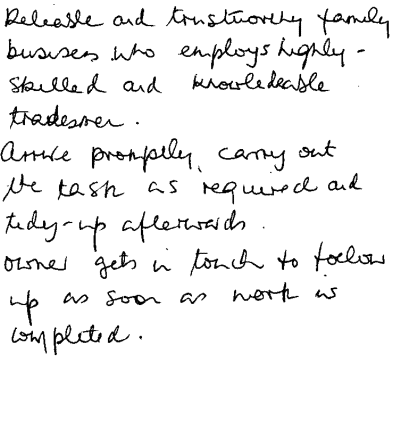 Reliable and trustworthy family
business who employs highly-
skilled and knowledeable
tradesmen.
Arrive promptly, carry out
the task as required and
tidy-up afterwards.
Owner gets in touch to follow
up as soon as work is
completed.